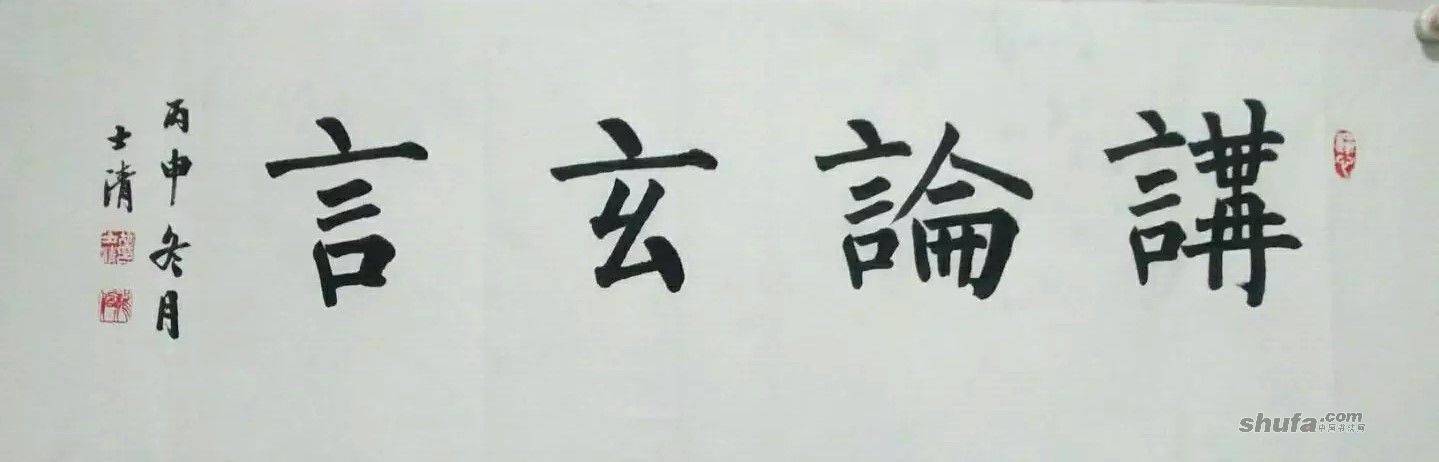 講論玄言
丙申冬月
士清
shufa.com
中国书法网